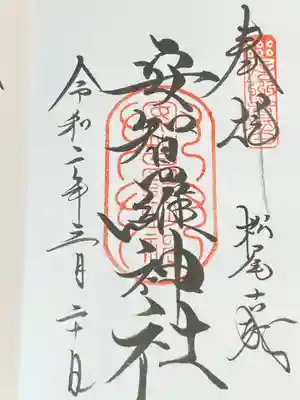 奉拝
松尾古城
安智羅神社
令和二年三月二十日